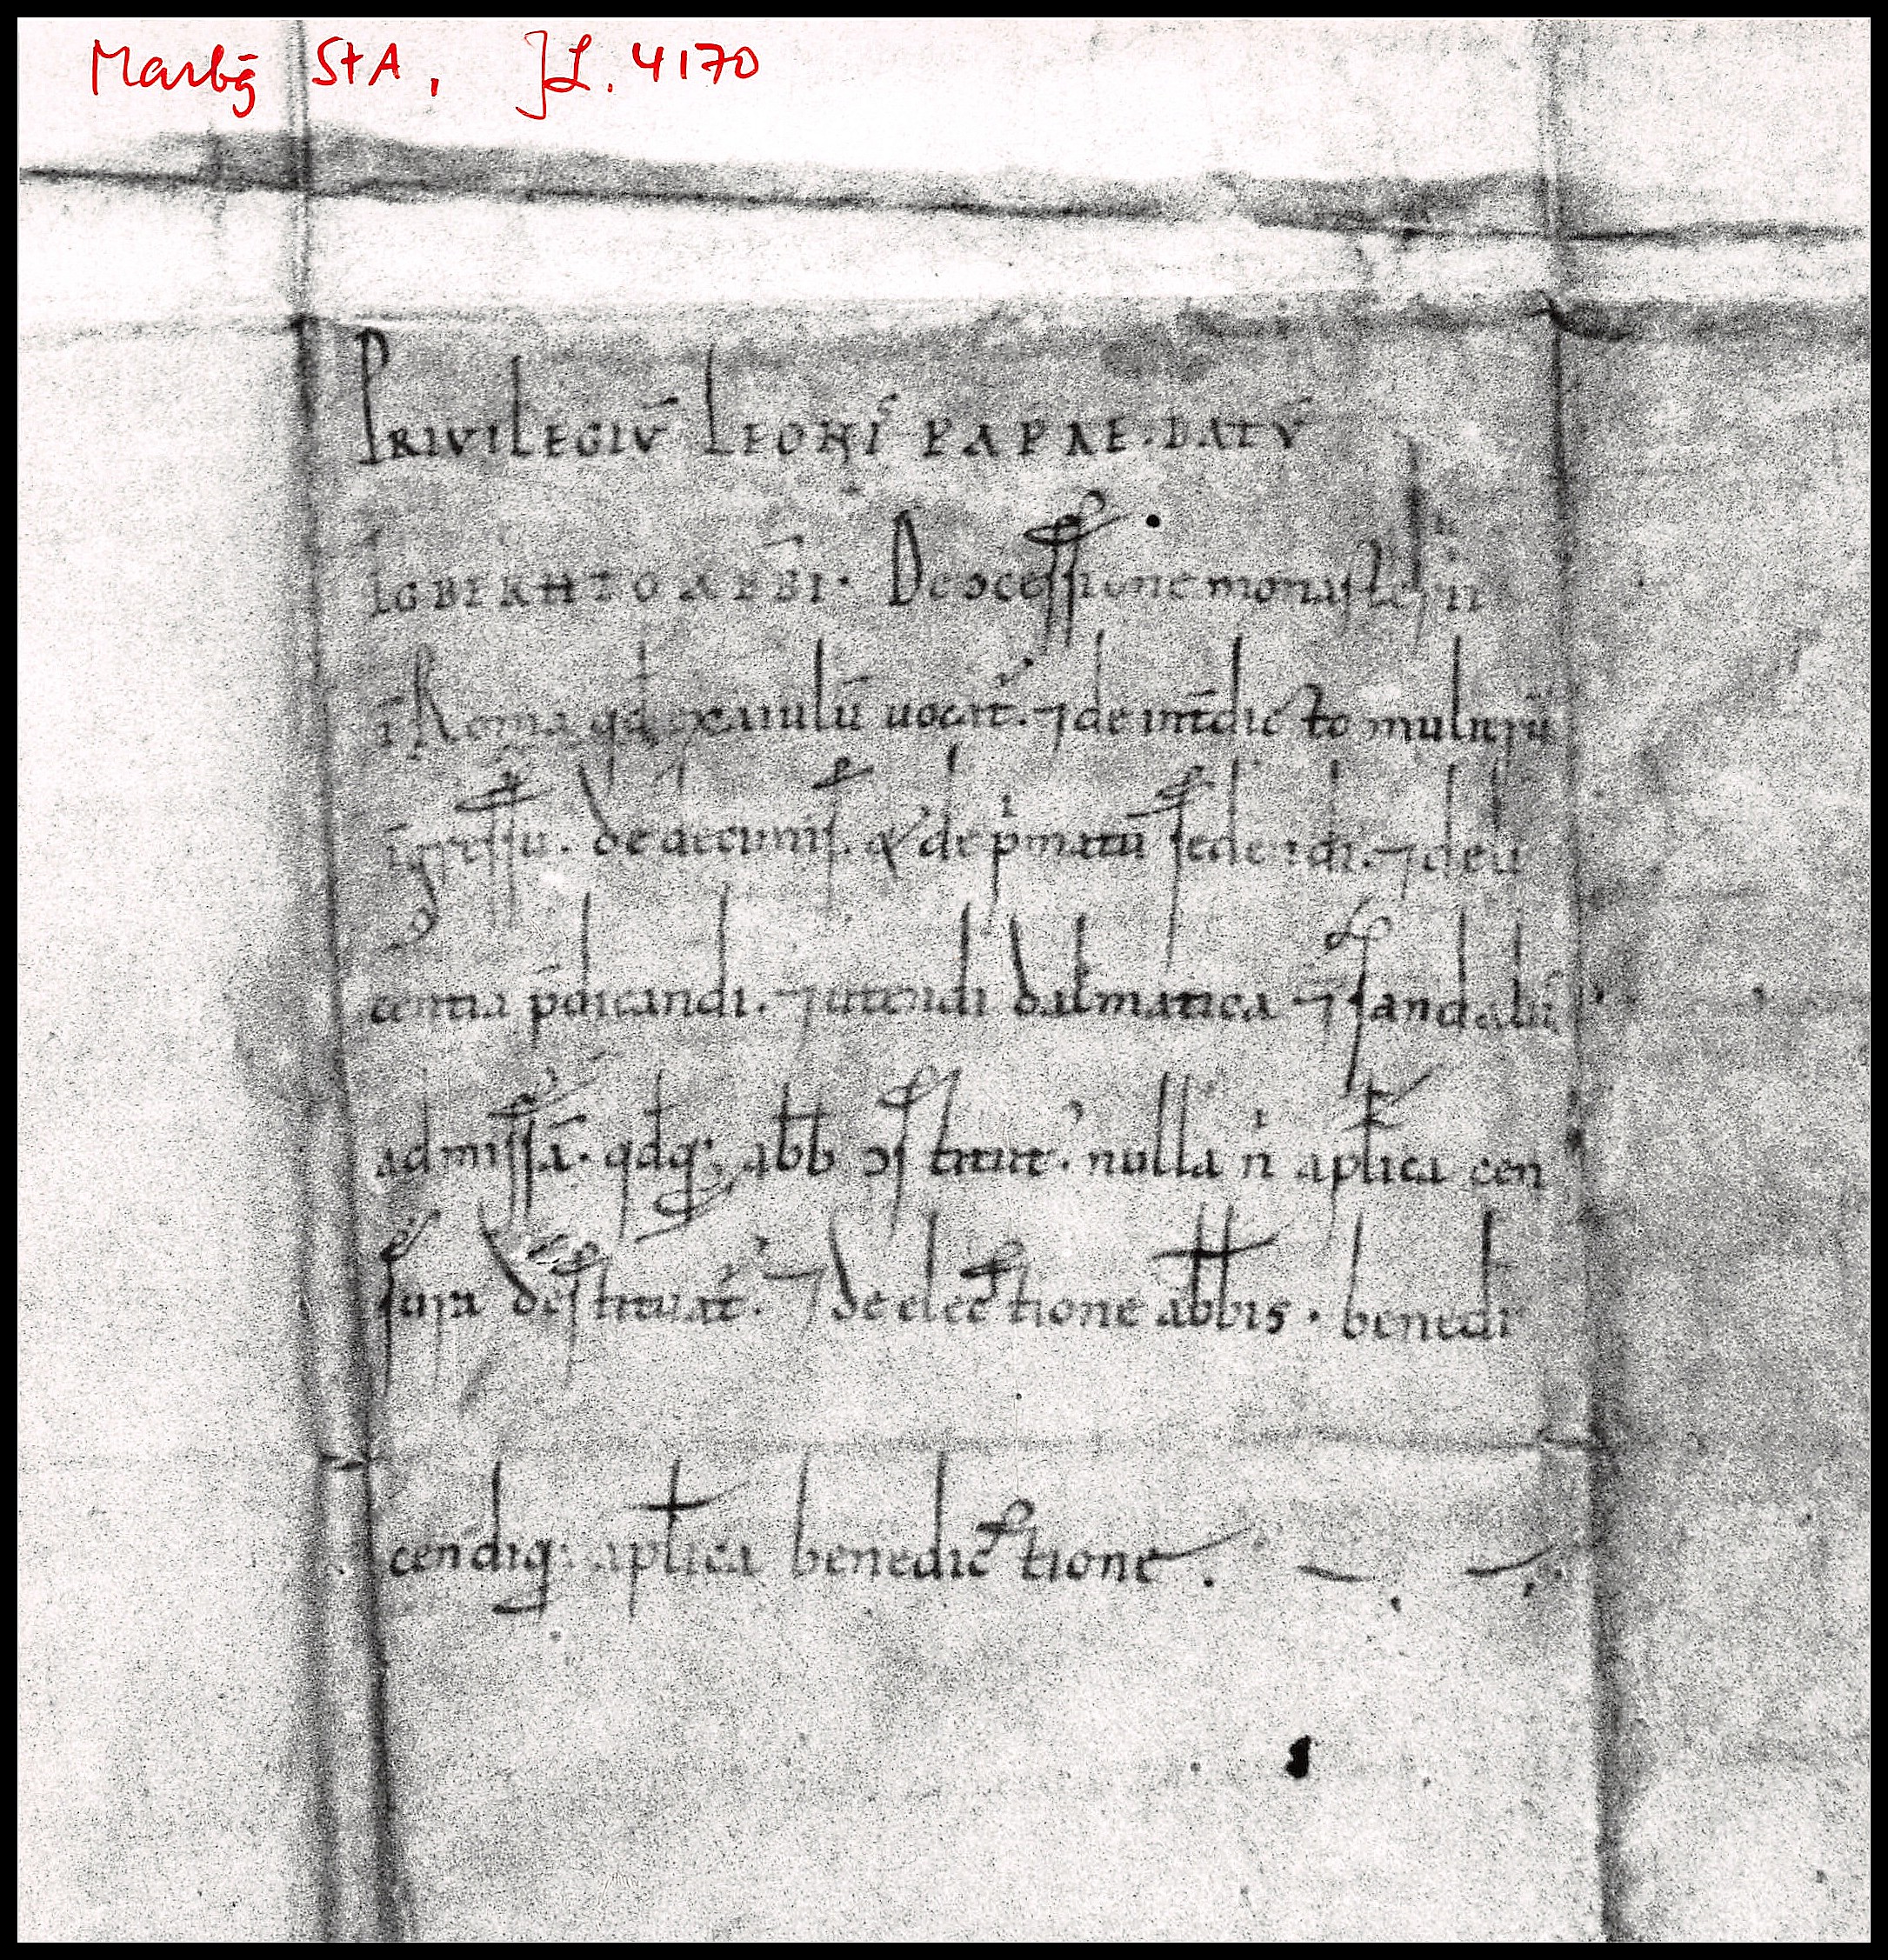 Marbg̅ StA, JL. 4170
PRIVILEGIV̄ LEONI᷒ PAPAE. DATV̄
EGBERHTO ABB̄I. De ɔcessione monasterii
ī Roma qđ exaiulū uocat᷒. ⁊ de int̄dicto mulierū
īgressu. de decimis. & de p̍matu sedendi. ⁊ de li
centia p̄dicandi. ⁊ utendi dalmatica ⁊ sandaliis
ad missā. qđq; abb ɔstituit. nulla n̍ aplica cen
sura destruat᷒. ⁊ de electione abbis. benedi
cendiq; aplica benedictione.